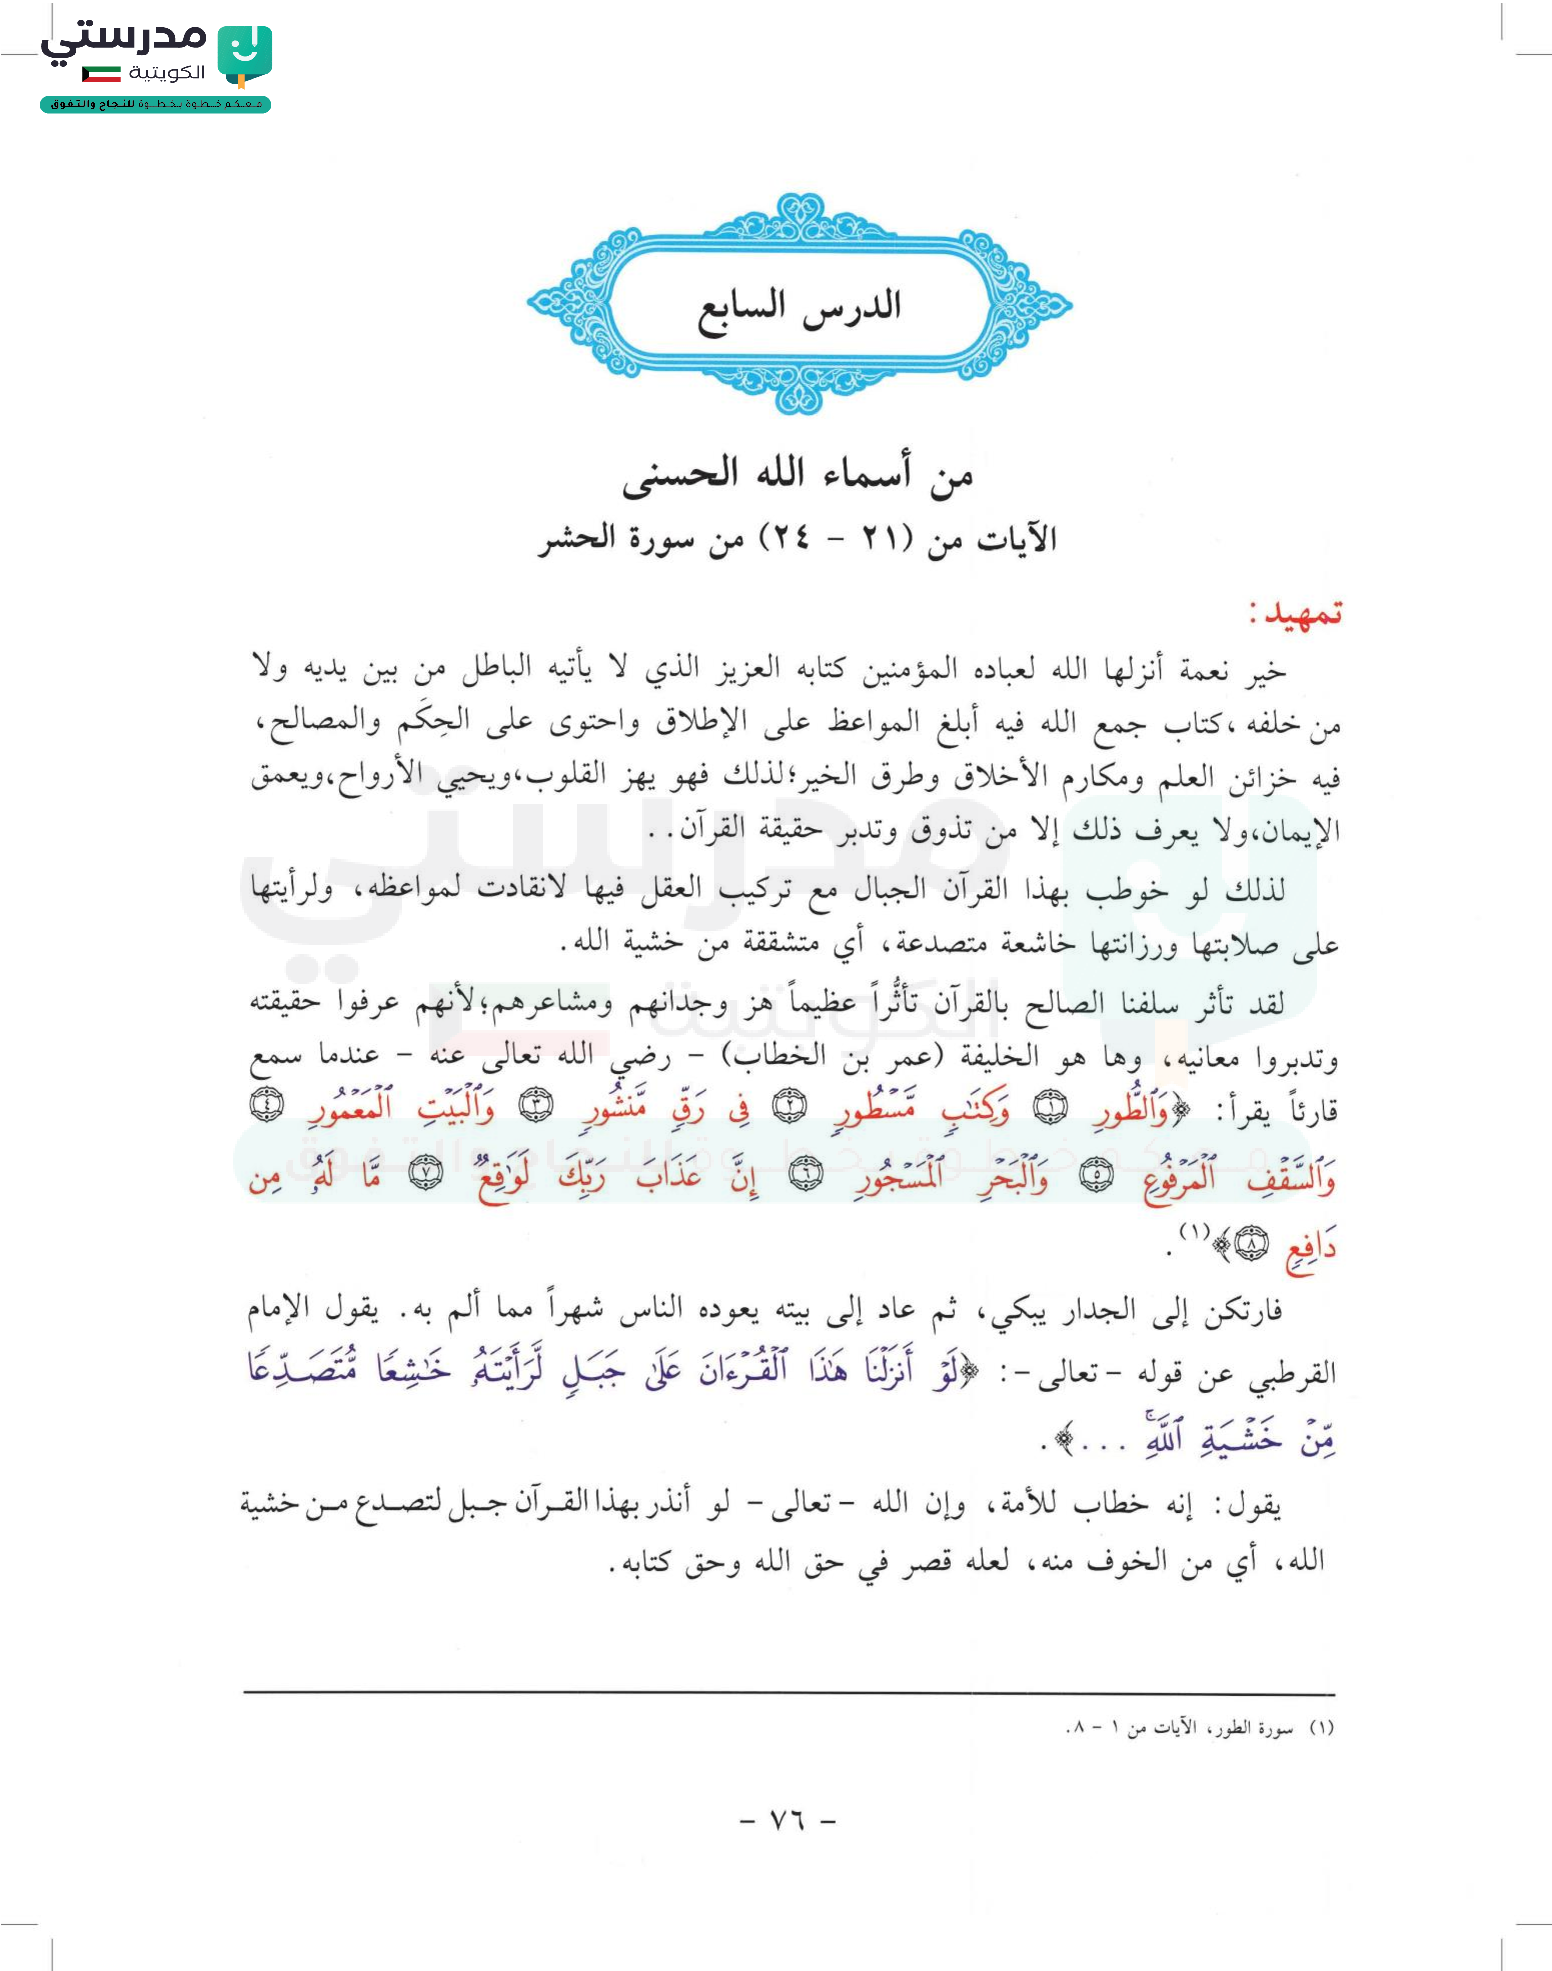 مدرستي
الكويتية
معكم خطوة بخطوة للنجاح والتفوق
الدرس السابع
من أسماء الله الحسنى
الآيات من (٢١ - ٢٤) من سورة الحشر
تمهيد:
خير نعمة أنزلها الله لعباده المؤمنين كتابه العزيز الذي لا يأتيه الباطل من بين يديه ولا
من خلفه ،كتاب جمع الله فيه أبلغ المواعظ على الإطلاق واحتوى على الحِكَم والمصالح،
فيه خزائن العلم ومكارم الأخلاق وطرق الخير؛لذلك فهو يهز القلوب،ويحيي الأرواح،ويعمق
الإيمان،ولا يعرف ذلك إلا من تذوق وتدبر حقيقة القرآن..
لذلك لو خوطب بهذا القرآن الجبال مع تركيب العقل فيها لانقادت لمواعظه، ولرأيتها
على صلابتها ورزانتها خاشعة متصدعة، أي متشققة من خشية الله.
لقد تأثر سلفنا الصالح بالقرآن تأثُّراً عظيماً هز وجدانهم ومشاعرهم؛لأنهم عرفوا حقيقته
وتدبروا معانيه، وها هو الخليفة (عمر بن الخطاب) - رضي الله تعالى عنه - عندما سمع
قارئاً يقرأ: ﴿وَٱلطُّورِ ١ وَكِتَٰبٖ مَّسۡطُورٖ ٢ فِي رَقّٖ مَّنشُورٖ ٣ وَٱلۡبَيۡتِ ٱلۡمَعۡمُورِ ٤
وَٱلسَّقۡفِ ٱلۡمَرۡفُوعِ ٥ وَٱلۡبَحۡرِ ٱلۡمَسۡجُورِ ٦ إِنَّ عَذَابَ رَبِّكَ لَوَٰقِعٞ ٧ مَّا لَهُۥ مِن
دَافِعٖ ٨﴾(١).
فارتكن إلى الجدار يبكي، ثم عاد إلى بيته يعوده الناس شهراً مما ألم به. يقول الإمام
القرطبي عن قوله -تعالى-: ﴿لَوۡ أَنزَلۡنَا هَٰذَا ٱلۡقُرۡءَانَ عَلَىٰ جَبَلٖ لَّرَأَيۡتَهُۥ خَٰشِعٗا مُّتَصَدِّعٗا
مِّنۡ خَشۡيَةِ ٱللَّهِۚ ...﴾.
يقول: إنه خطاب للأمة، وإن الله -تعالى- لو أنذر بهذا القرآن جبل لتصدع من خشية
الله، أي من الخوف منه، لعله قصر في حق الله وحق كتابه.
(١) سورة الطور، الآيات من ١ - ٨.
- ٧٦ -